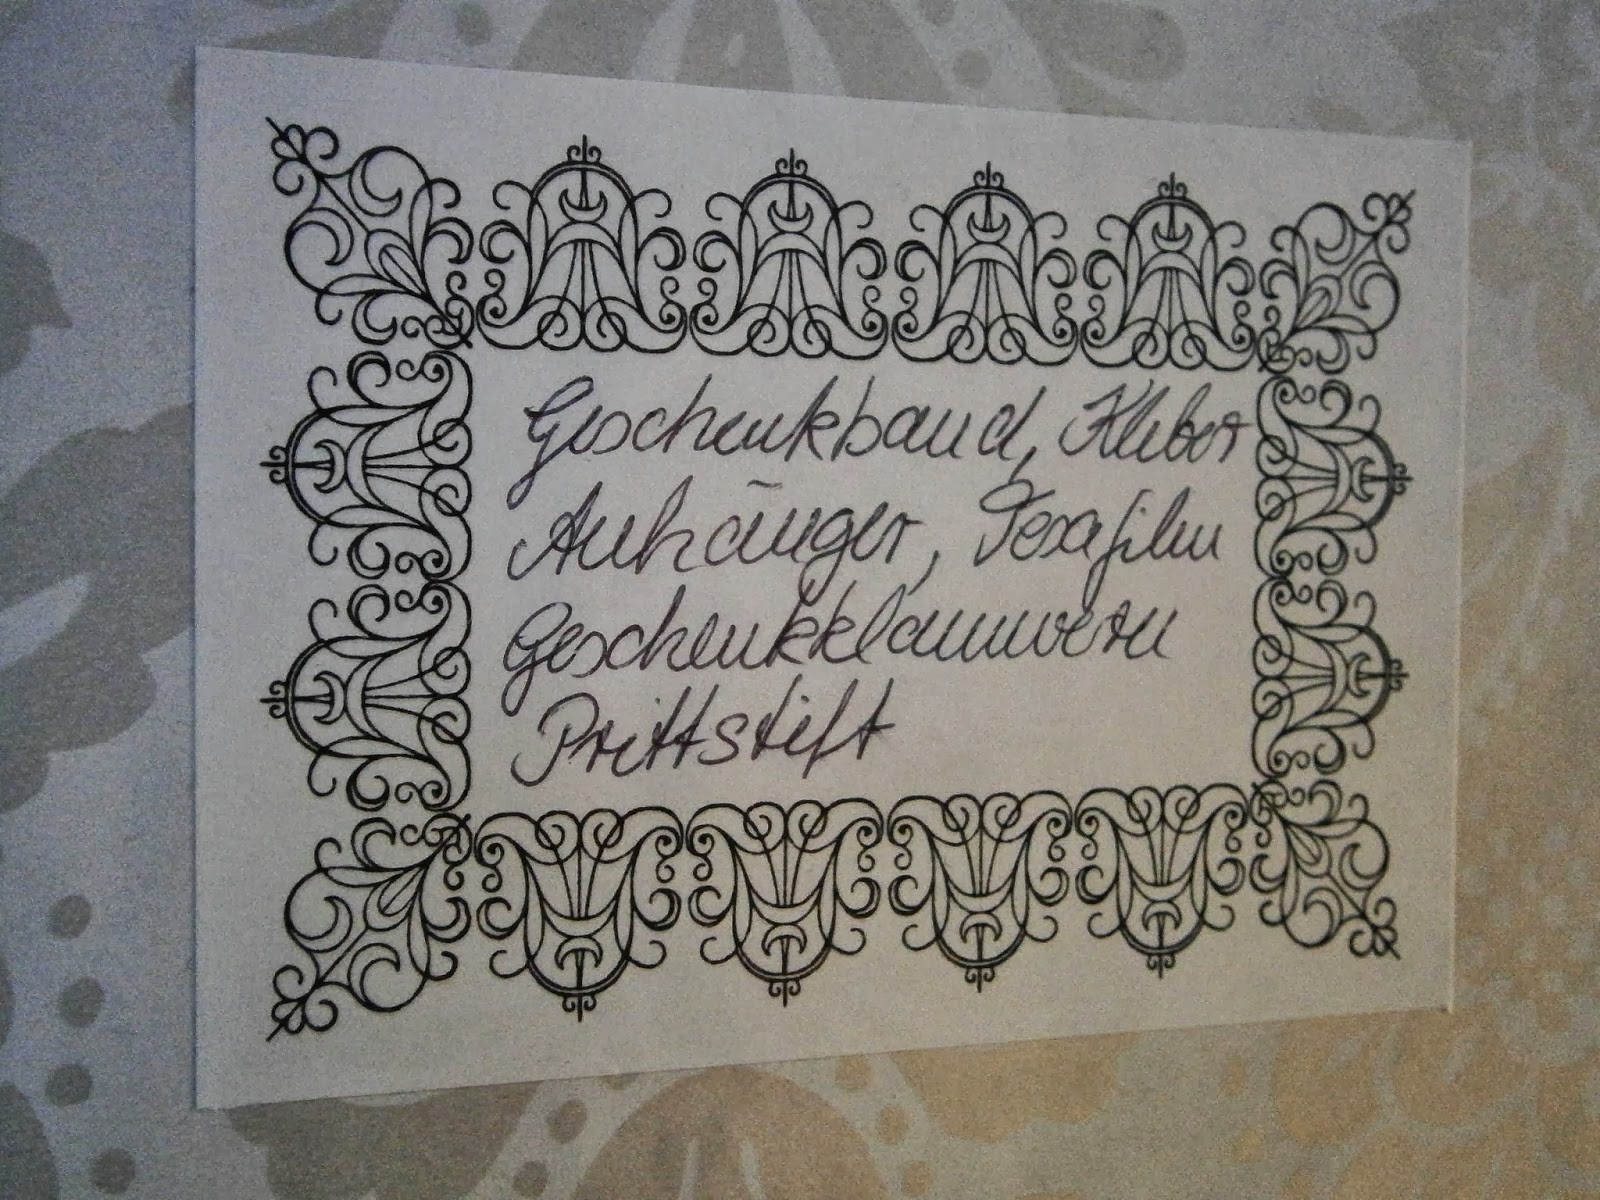 Geschenkband, Kleber
Anhänger, Tesafilm
Geschenkklammern
Prittstift